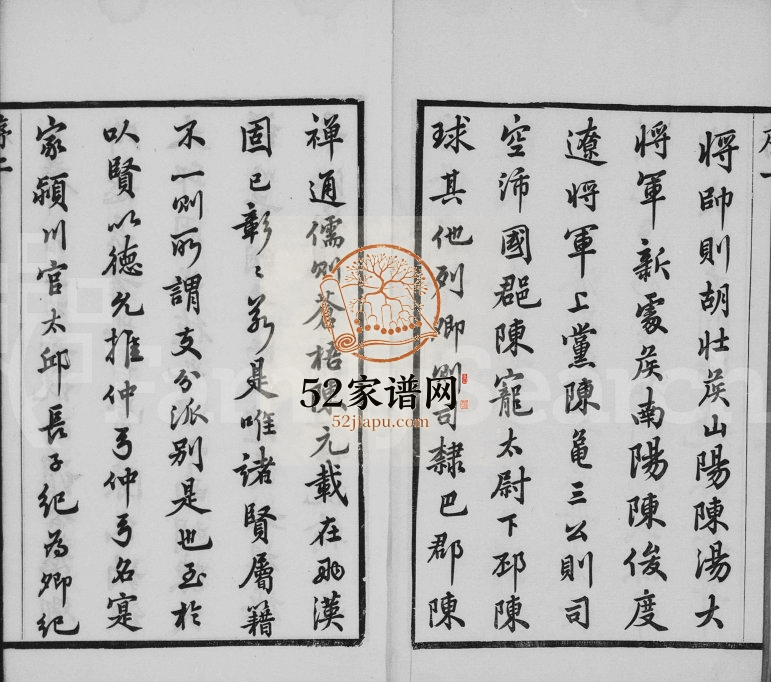 序一
將帥則胡壯矦山陽陳湯大
將軍新處矦南陽陳俊度
遼將軍上黨陳龜三公則司
空沛國郡陳寵太尉下邳陳
球其他列卿則司隸巴郡陳
禪通儒則蒼梧陳元載在兩漢
固已彰〻若是唯諸賢屬籍
不一則所謂支分派别是也至於
以賢以德允推仲弓仲弓名寔
家潁川官太邱長子紀為卿紀
序二
52家谱网
52jiapu.com
FamilySearch